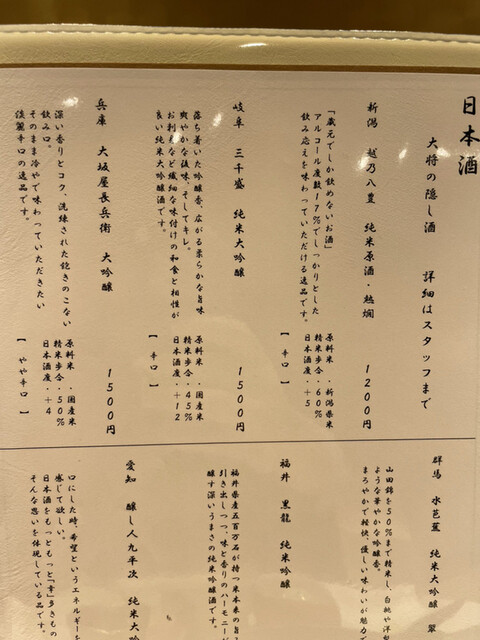 日本酒
大将の隠し酒　詳細はスタッフまで
新潟　越乃八豊　純米原酒・熱燗　1200円
「蔵元でしか飲めないお酒」
アルコール度数17%でしっかりとした
飲み応えを味わっていただける逸品です。
原料米・新潟県米
精米歩合・60%
日本酒度・+5
【辛口】
岐阜　三千盛　純米大吟醸　1500円
落ち着いた吟醸香、広がる柔らかな旨味
爽やかな後味、そしてキレ。
お刺身など繊細な味付けの和食と相性が
良い純米大吟醸酒です。
原料米・国産米
精米歩合・45%
日本酒度・+12
【辛口】
兵庫　大坂屋長兵衛　大吟醸　1500円
深い香りとコク、洗練された飽きのこない
飲み口。
そのまま冷やで味わっていただきたい
淡麗辛口の逸品です。
原料米・国産米
精米歩合・50%
日本酒度・+4
【やや辛口】
群馬　水芭蕉　純米大吟醸　翠
山田錦を50%まで精米し、白桃や洋梨
ような華やかな吟醸香。
まろやかで軽快、優しい味わいが魅力で
福井　黒龍　純米吟醸
福井県産五百万石が持つ米本来の旨
引き出しつつ、味と香りのハーモニーが
醸す深いうまさの純米吟醸酒です。
愛知　醸し人九平次　純米大吟
口にした時、希望というエネルギーを
感じて欲しい。
日本酒をもっともっと「幸」多きもの
そんな思いを体現している品です。